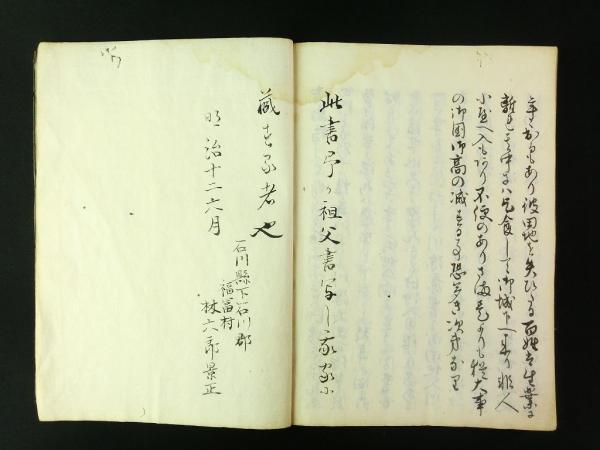 事かもあり彼田地を失ひたる百姓共生業に
離れ其中には乞食して御城下へ来り非人
小屋へ入もあり不便のありさま
の御国御高の減する事恐多き次第なり
此書予か祖父書写し我家に
蔵する者也
明治十二六月
石川縣下石川郡
福富村
林六郎景正